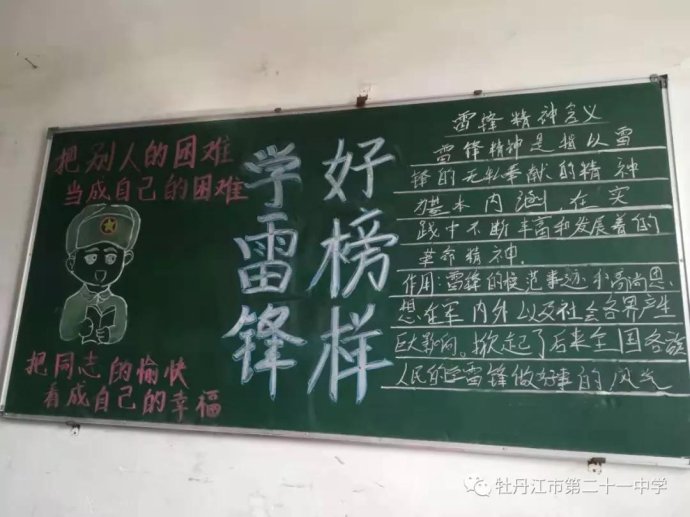 把别人的困难
当成自己的困难
把同志的愉快
看成自己的幸福
学雷锋
好榜样
雷锋精神含义
雷锋精神是指以雷
锋的无私奉献的精神
为基本内涵在实
践中不断丰富和发展着的
革命精神.
作用:雷锋的模范事迹和高尚思
想在军内外以及社会各界产生
巨大影响,掀起了后来全国各族
人民的学雷锋做好事的风气
牡丹江市第二十一中学